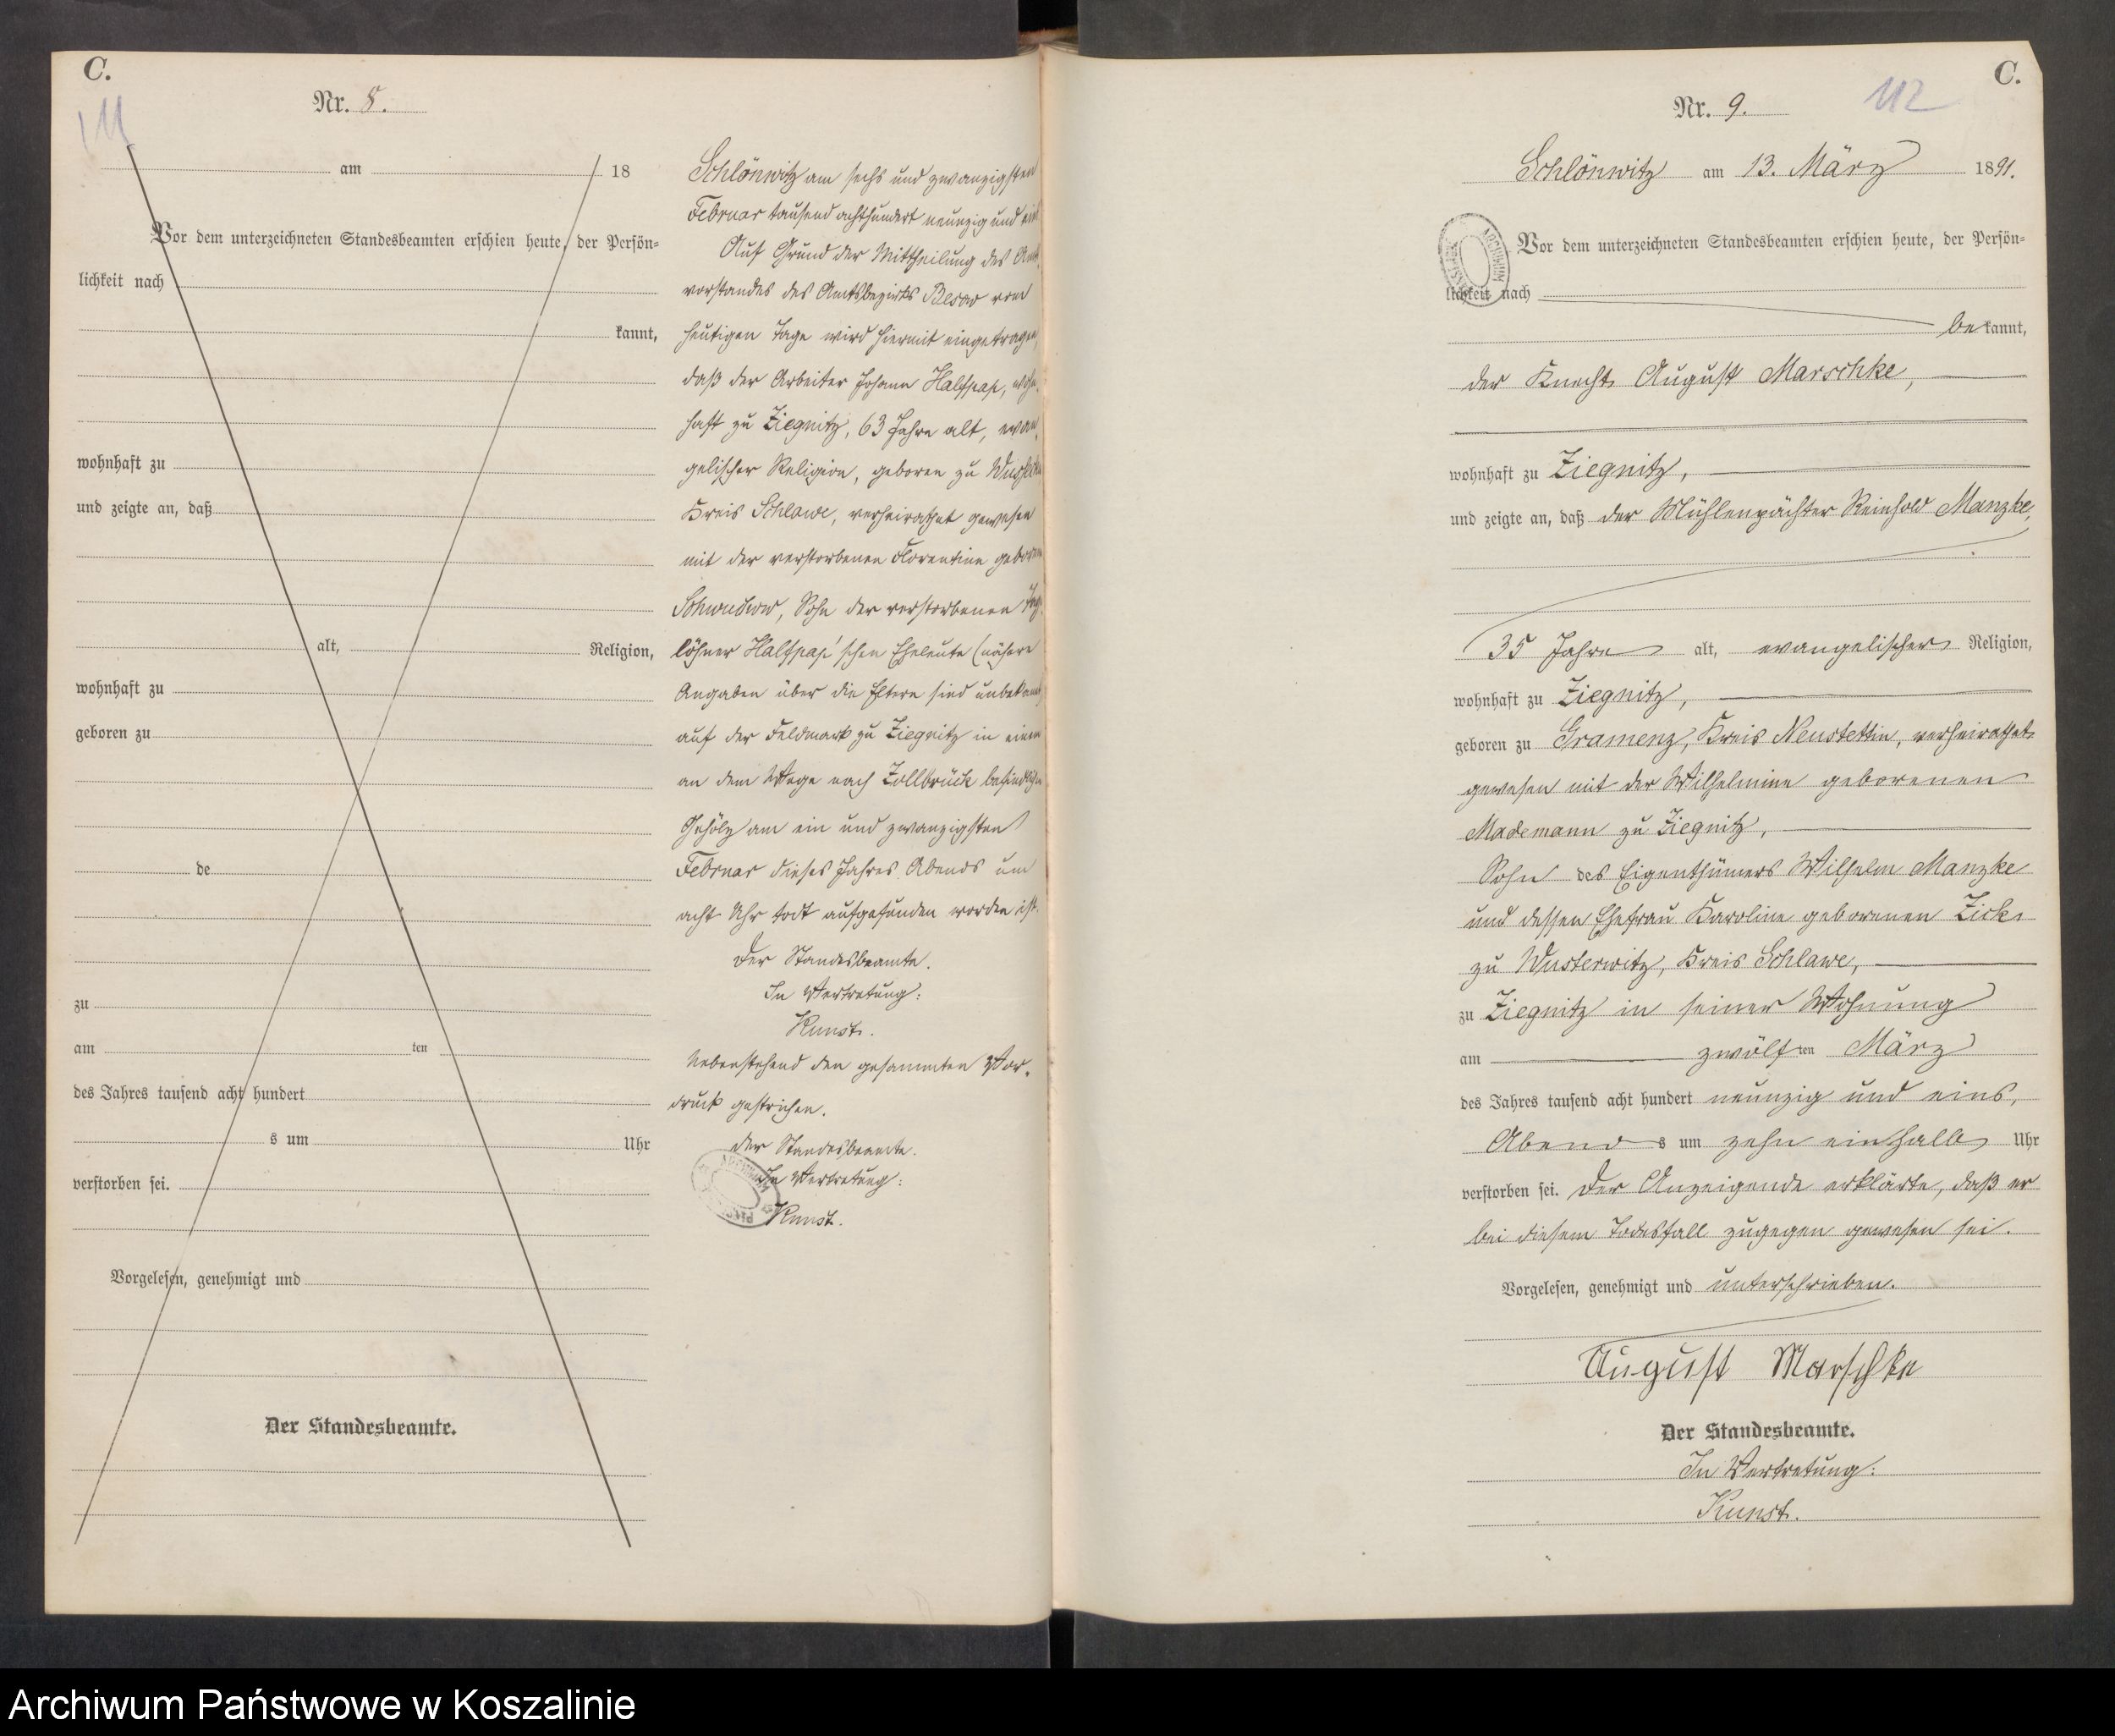 C.
111
Nr. 8.
am 18
Vor dem unterzeichneten Standesbeamten erschien heute, der Persön=
lichkeit nach
kannt,
wohnhaft zu
und zeigte an, daß
alt, Religion,
wohnhaft zu
geboren zu
de
zu
am ten
des Jahres tausend acht hundert
s um Uhr
verstorben sei.
Vorgelesen, genehmigt und
Der Standesbeamte.
Schlönwitz am sechs und zwanzigsten
Februar tausend achthundert neunzig und eins
Auf Grund der Mittheilung des Amts
vorstandes des Amtsbezirks Beswo vom
heutigen Tage wird hiermit eingetragen,
daß der Arbeiter Johann Halfpap, wohn
haft zu Ziegnitz, 63 Jahre alt, evan
gelischer Religion, geboren zu
Kreis Schlawe, verheirathet gewesen
mit der verstorbenen Florentine geboren
Schwuchow, Sohn der verstorbenen Tage
löhner Halfpap'schen Eheleute (nähere
Angaben über die Eltern sind unbekannt)
auf der Feldmark zu Ziegnitz in einem
an dem Wege nach Zollbrück befindlichen
Gehölz am ein und zwanzigsten
Februar dieses Jahres Abends um
acht Uhr todt aufgefunden worden ist.
Der Standesbeamte.
In Vertretung:
Kunst.
Nebenstehend den gesammten Vor-
druck gestrichen.
Der Standesbeamte.
In Vertretung:
Kunst.
C.
112
Nr. 9.
Schlönwitz am 13. März 1891.
Vor dem unterzeichneten Standesbeamten erschien heute, der Persön=
lichkeit nach
bekannt,
der Knecht August Marschke,
wohnhaft zu Ziegnitz,
und zeigte an, daß der Mühlenpächter Reinhold Manzke,
35 Jahre alt, evangelischer Religion,
wohnhaft zu Ziegnitz,
geboren zu Gramenz, Kreis Neustettin, verheirathet
gewesen mit der Wilhelmine geborenen
Mademann zu Ziegnitz,
Sohn des Eigenthümers Wilhelm Manzke
und dessen Ehefrau Karoline geborenen Zick
zu Wusterwitz, Kreis Schlawe,
zu Ziegnitz in seiner Wohnung
am zwölften März
des Jahres tausend acht hundert neunzig und eins,
Abends um zehn einhalb Uhr
verstorben sei. Der Anzeigende erklärte, daß er
bei diesem Todesfall zugegen gewesen sei.
Vorgelesen, genehmigt und unterschrieben.
August Marschke
Der Standesbeamte.
In Vertretung:
Kunst.
Archiwum Państwowe w Koszalinie